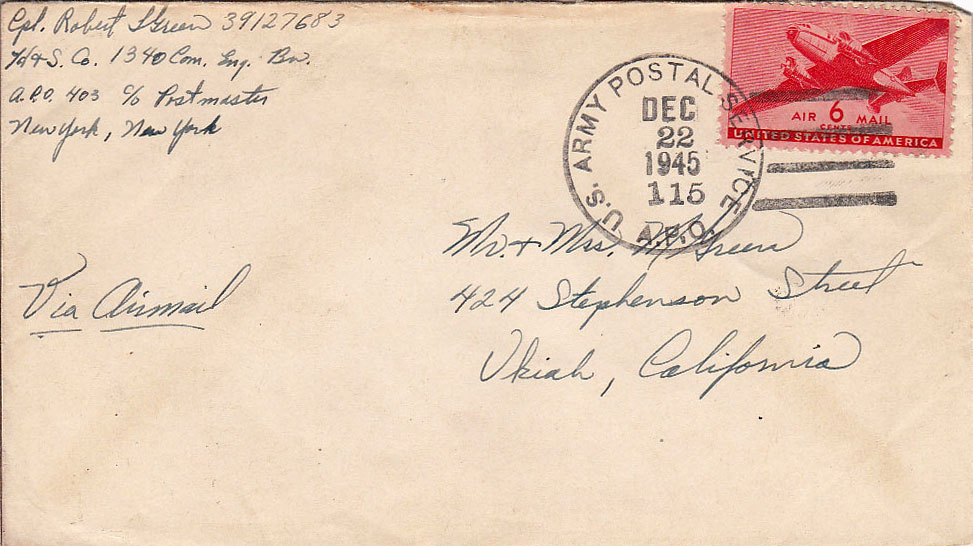 Cpl. Robert S Green 39127683
Hd + S. Co. 1340 Com. Eng. Bn.
A.P.O. 403 c/o Postmaster
New York, New York
U.S. ARMY POSTAL SERVICE
DEC
22
1945
115
A.P.O.
AIR 6 MAIL
CENTS
UNITED STATES OF AMERICA
Mr. + Mrs. M Green
424 Stephenson Street
Ukiah, California
Via Airmail